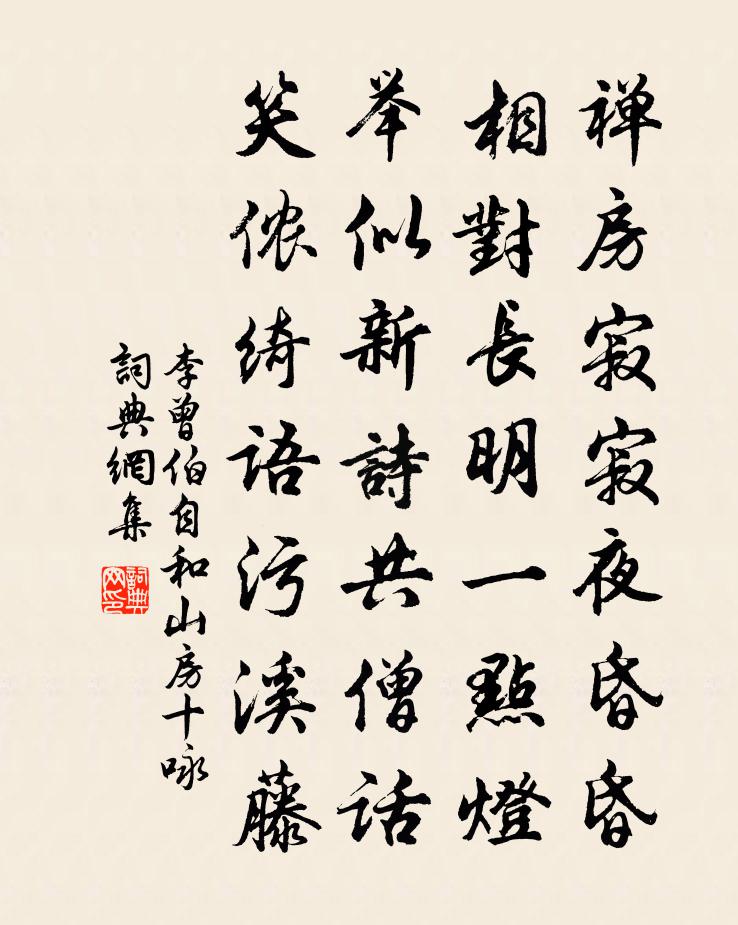 禅房寂寂夜昏昏
相對長明一點燈
举似新詩共僧话
笑侬绮语污溪藤
李曾伯自和山房十咏
詞典網集
詞典网印